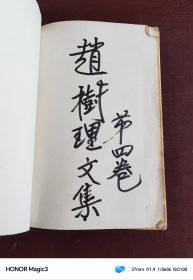 趙樹理文集
第四卷
HONOR Magic3
27mm f/1.9 1/36s ISO100